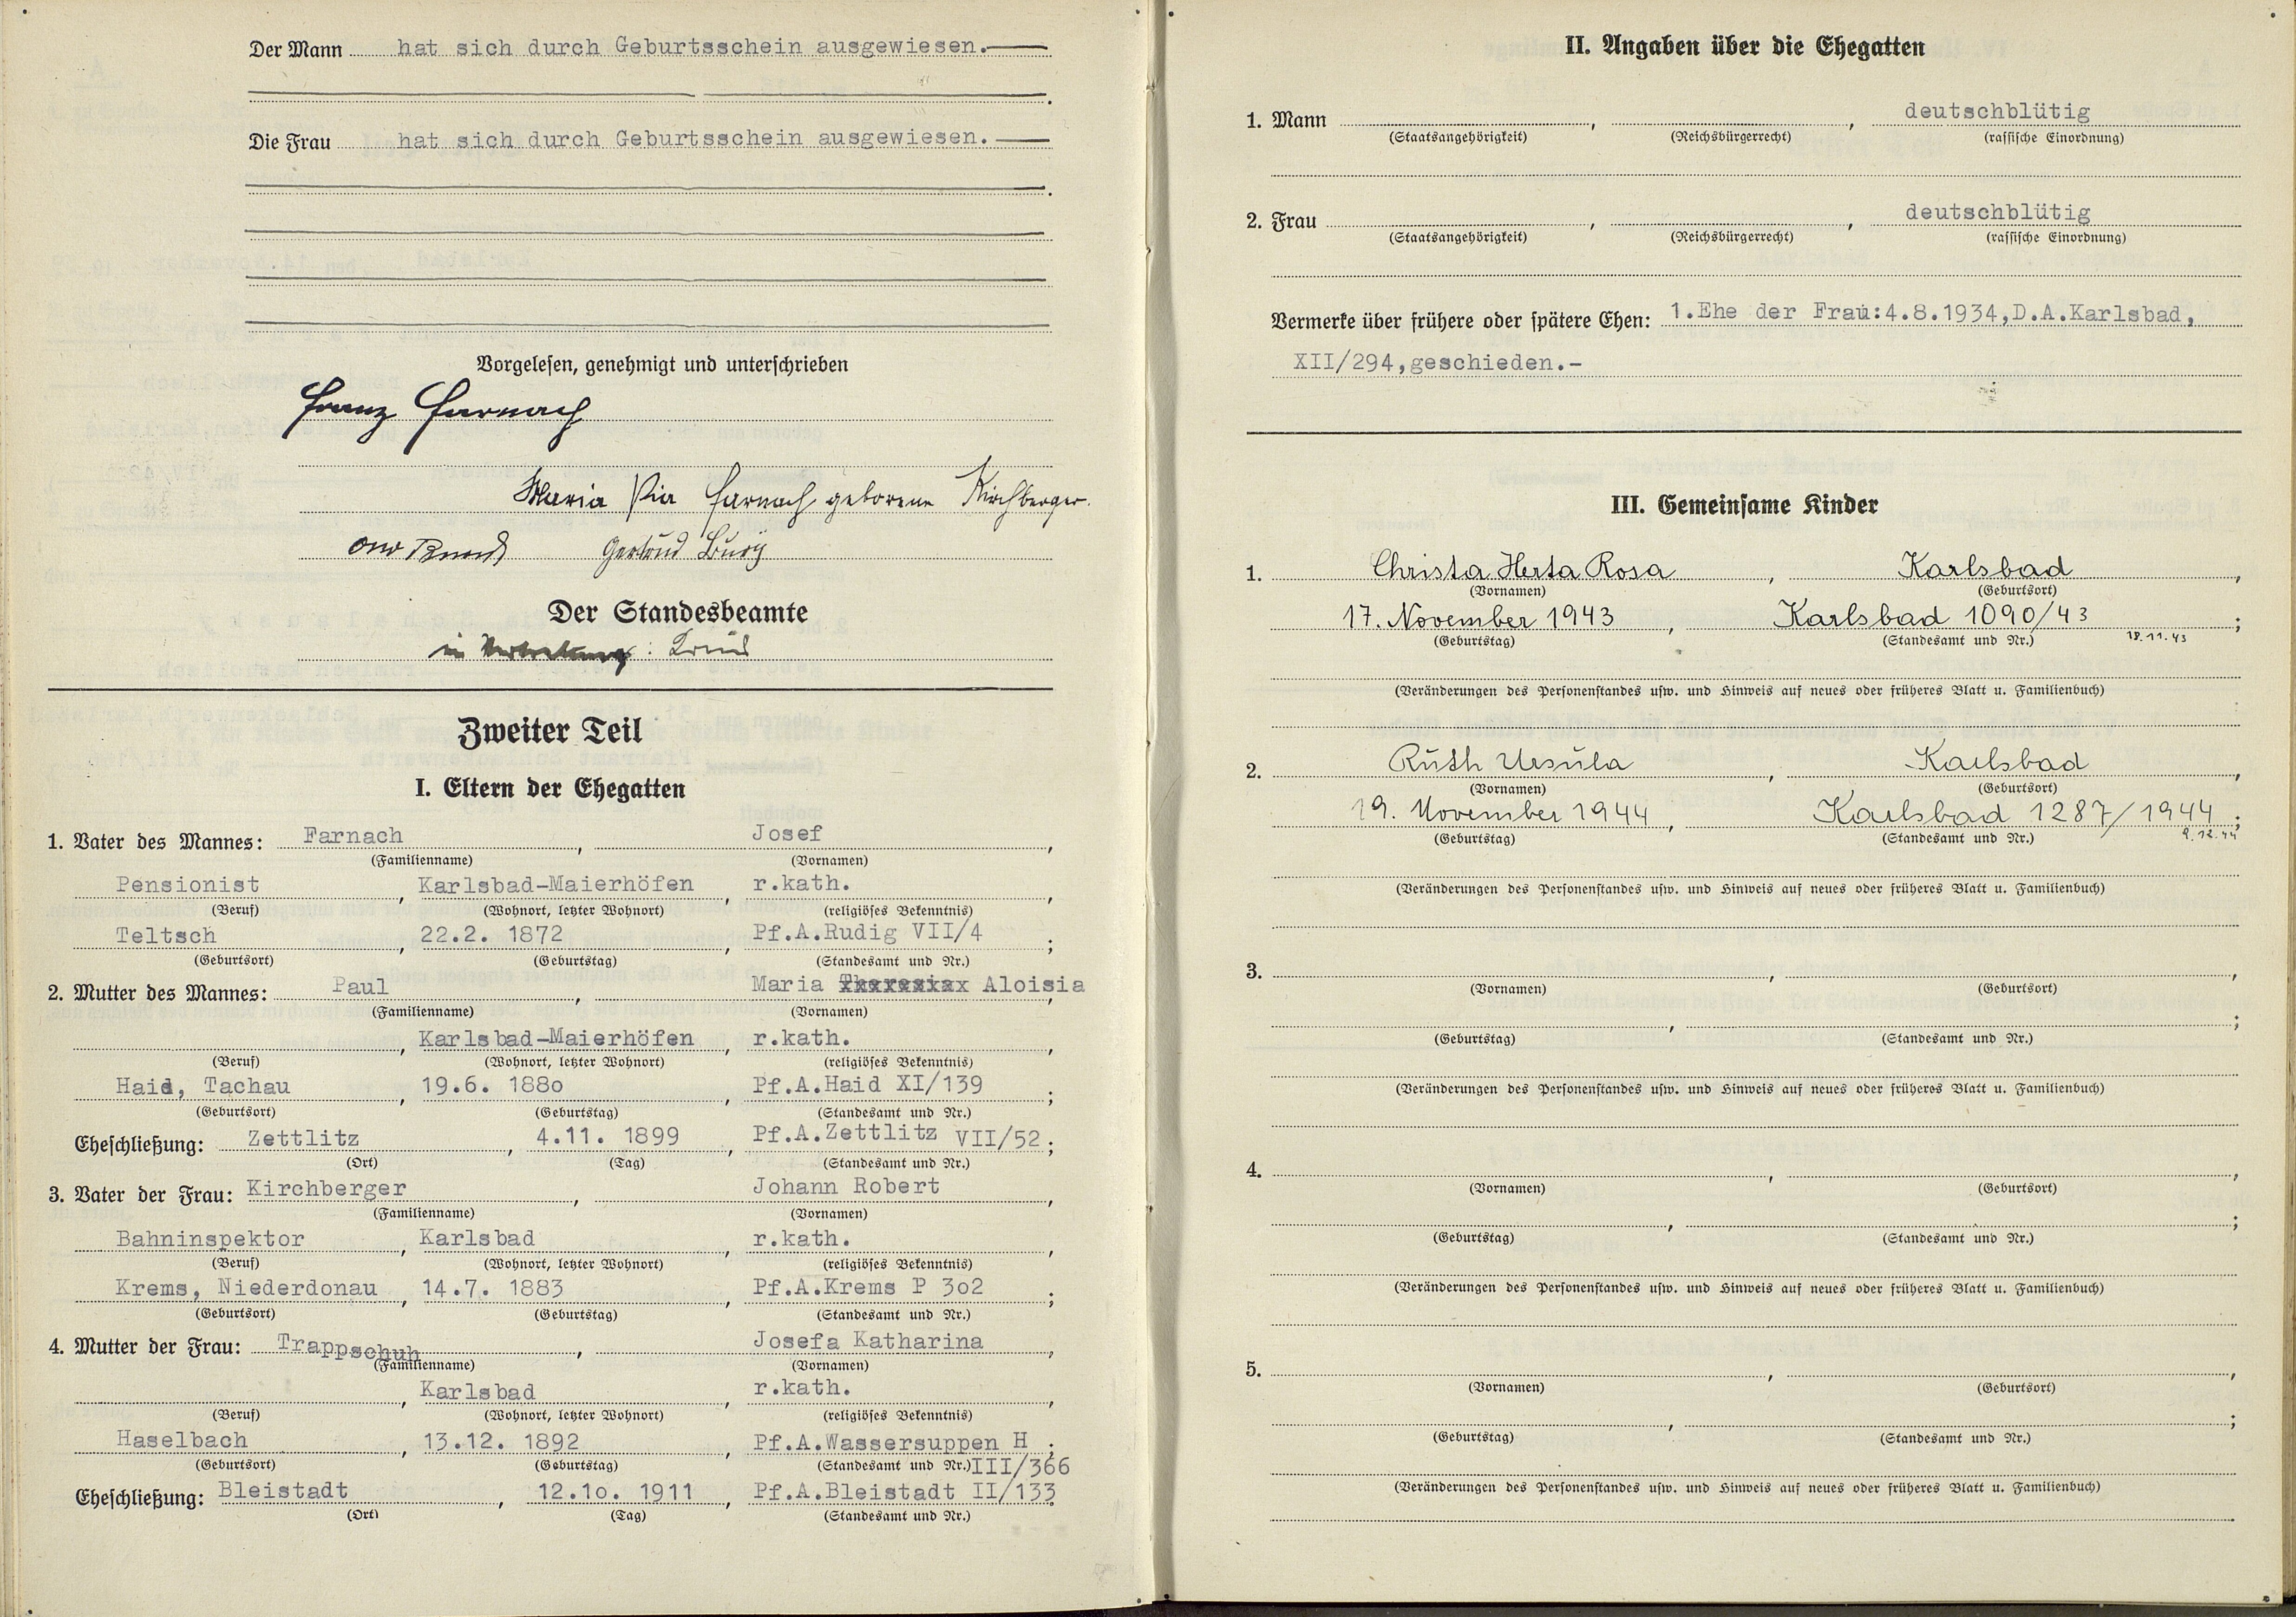 Der Mann hat sich durch Geburtsschein ausgewiesen.
Die Frau hat sich durch Geburtsschein ausgewiesen.
Vorgelesen, genehmigt und unterschrieben
Franz Farnach
Maria Pia Farnach geborene Kirchberger.
Gertrud
Der Standesbeamte
in Vertretung:
Zweiter Teil
I. Eltern der Ehegatten
1. Vater des Mannes: Farnach, Josef,
(Familienname) (Vornamen)
Pensionist, Karlsbad-Maierhöfen, r.kath.,
(Beruf) (Wohnort, letzter Wohnort) (religiöses Bekenntnis)
Teltsch, 22.2. 1872, Pf.A.Rudig VII/4;
(Geburtsort) (Geburtstag) (Standesamt und Nr.)
2. Mutter des Mannes: Paul, Maria Aloisia,
(Familienname) (Vornamen)
, Karlsbad-Maierhöfen, r.kath.,
(Beruf) (Wohnort, letzter Wohnort) (religiöses Bekenntnis)
Haid, Tachau, 19.6. 188o, Pf.A.Haid XI/139;
(Geburtsort) (Geburtstag) (Standesamt und Nr.)
Eheschließung: Zettlitz, 4.11. 1899, Pf.A.Zettlitz VII/52;
(Ort) (Tag) (Standesamt und Nr.)
3. Vater der Frau: Kirchberger, Johann Robert,
(Familienname) (Vornamen)
Bahninspektor, Karlsbad, r.kath.,
(Beruf) (Wohnort, letzter Wohnort) (religiöses Bekenntnis)
Krems, Niederdonau, 14.7. 1883, Pf.A.Krems P 3o2;
(Geburtsort) (Geburtstag) (Standesamt und Nr.)
4. Mutter der Frau: Trappschuh, Josefa Katharina,
(Familienname) (Vornamen)
, Karlsbad, r.kath.,
(Beruf) (Wohnort, letzter Wohnort) (religiöses Bekenntnis)
Haselbach, 13.12. 1892, Pf.A.Wassersuppen H;
(Geburtsort) (Geburtstag) (Standesamt und Nr.) III/366
Eheschließung: Bleistadt, 12.1o. 1911, Pf.A.Bleistadt II/133
(Ort) (Tag) (Standesamt und Nr.)
II. Angaben über die Ehegatten
1. Mann , , deutschblütig
(Staatsangehörigkeit) (Reichsbürgerrecht) (rassische Einordnung)
2. Frau , , deutschblütig
(Staatsangehörigkeit) (Reichsbürgerrecht) (rassische Einordnung)
Vermerke über frühere oder spätere Ehen: 1.Ehe der Frau:4.8.1934,D.A.Karlsbad,
XII/294,geschieden.-
III. Gemeinsame Kinder
1. Christa Herta Rosa, Karlsbad,
(Vornamen) (Geburtsort)
17. November 1943, Karlsbad 1090/43;
(Geburtstag) (Standesamt und Nr.) 18.11.43
(Veränderungen des Personenstandes usw. und Hinweis auf neues oder früheres Blatt u. Familienbuch)
2. Ruth Ursula, Karlsbad,
(Vornamen) (Geburtsort)
19. November 1944, Karlsbad 1287/1944;
(Geburtstag) (Standesamt und Nr.) 2.12.44
(Veränderungen des Personenstandes usw. und Hinweis auf neues oder früheres Blatt u. Familienbuch)
3. , ,
(Vornamen) (Geburtsort)
, ;
(Geburtstag) (Standesamt und Nr.)
(Veränderungen des Personenstandes usw. und Hinweis auf neues oder früheres Blatt u. Familienbuch)
4. , ,
(Vornamen) (Geburtsort)
, ;
(Geburtstag) (Standesamt und Nr.)
(Veränderungen des Personenstandes usw. und Hinweis auf neues oder früheres Blatt u. Familienbuch)
5. , ,
(Vornamen) (Geburtsort)
, ;
(Geburtstag) (Standesamt und Nr.)
(Veränderungen des Personenstandes usw. und Hinweis auf neues oder früheres Blatt u. Familienbuch)